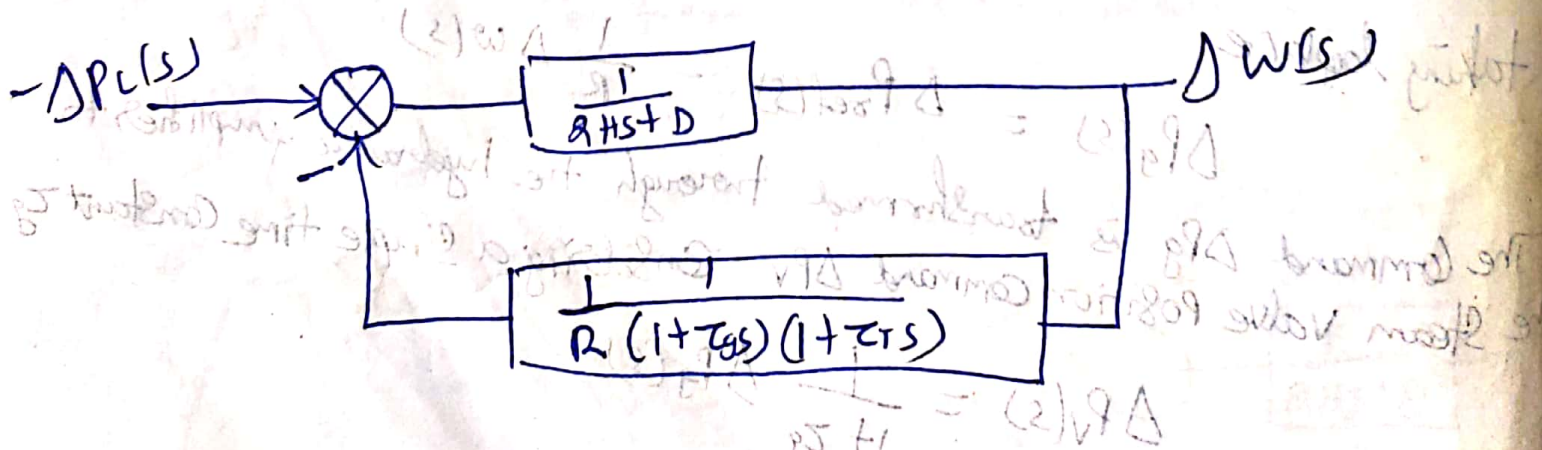 -ΔPL(s)
1
2HS+D
ΔW(s)
-
1
R (1+τgs) (1+τTS)